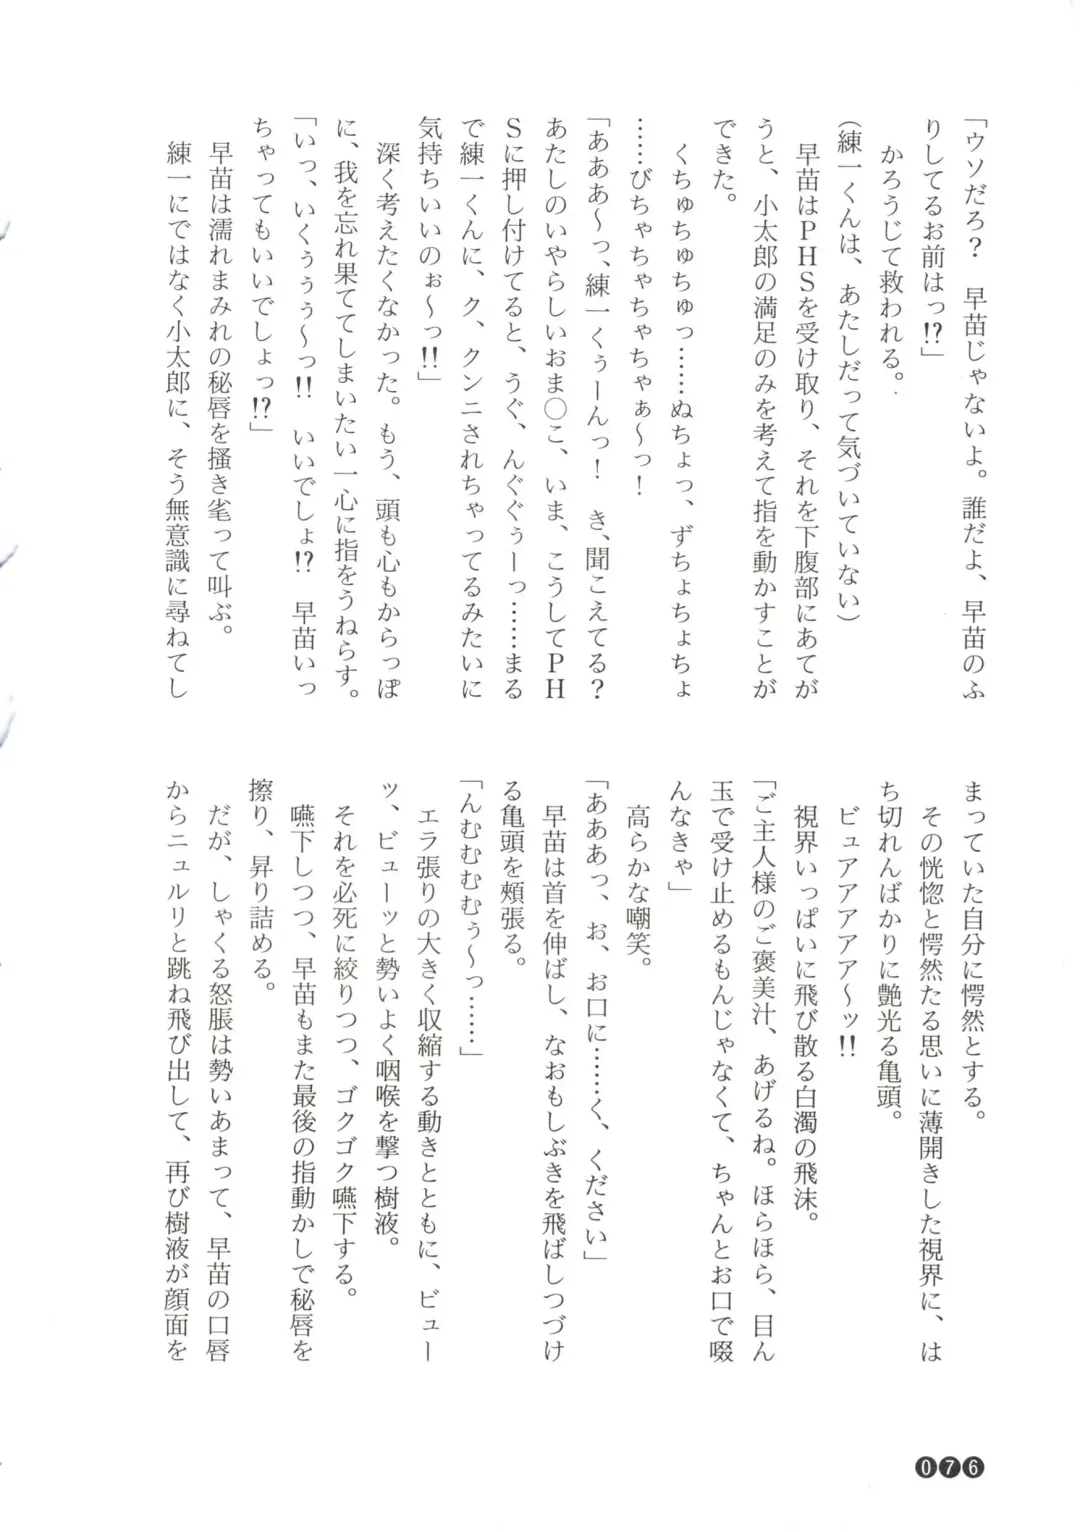 「ウソだろ？　早苗じゃないよ。誰だよ、早苗のふ
りしてるお前はっ!?」
　かろうじて救われる。
（練一くんは、あたしだって気づいていない）
　早苗はＰＨＳを受け取り、それを下腹部にあてが
うと、小太郎の満足のみを考えて指を動かすことが
できた。
　くちゅちゅちゅっ……ぬちょっ、ずちょちょちょ
……びちゃちゃちゃちゃぁ～っ！
「あああ～っ、練一くぅーんっ！　き、聞こえてる？
あたしのいやらしいおま○こ、いま、こうしてＰＨ
Ｓに押し付けてると、うぐ、んぐぐぅーっ……まる
で練一くんに、ク、クンニされちゃってるみたいに
気持ちいいのぉ～っ!!」
　深く考えたくなかった。もう、頭も心もからっぽ
に、我を忘れ果ててしまいたい一心に指をうねらす。
「いっ、いくううう～っ!!　いいでしょ!?　早苗いっ
ちゃってもいいでしょっ!?」
　早苗は濡れまみれの秘唇を掻き毟って叫ぶ。
　練一にではなく小太郎に、そう無意識に尋ねてし
まっていた自分に愕然とする。
　その恍惚と愕然たる思いに薄開きした視界に、は
ち切れんばかりに艶光る亀頭。
　ビュアアアアアア～ッ!!
　視界いっぱいに飛び散る白濁の飛沫。
「ご主人様のご褒美汁、あげるね。ほらほら、目ん
玉で受け止めるもんじゃなくて、ちゃんとお口で啜
んなきゃ」
　高らかな嘲笑。
「あああっ、お、お口に……く、ください」
　早苗は首を伸ばし、なおもしぶきを飛ばしつづけ
る亀頭を頬張る。
「んむむむむぅ～っ……」
　エラ張りの大きく収縮する動きとともに、ビュー
ッ、ビューッと勢いよく咽喉を撃つ樹液。
　それを必死に絞りつつ、ゴクゴク嚥下する。
　嚥下しつつ、早苗もまた最後の指動かしで秘唇を
擦り、昇り詰める。
　だが、しゃくる怒脹は勢いあまって、早苗の口唇
からニュルリと跳ね飛び出して、再び樹液が顔面を
076